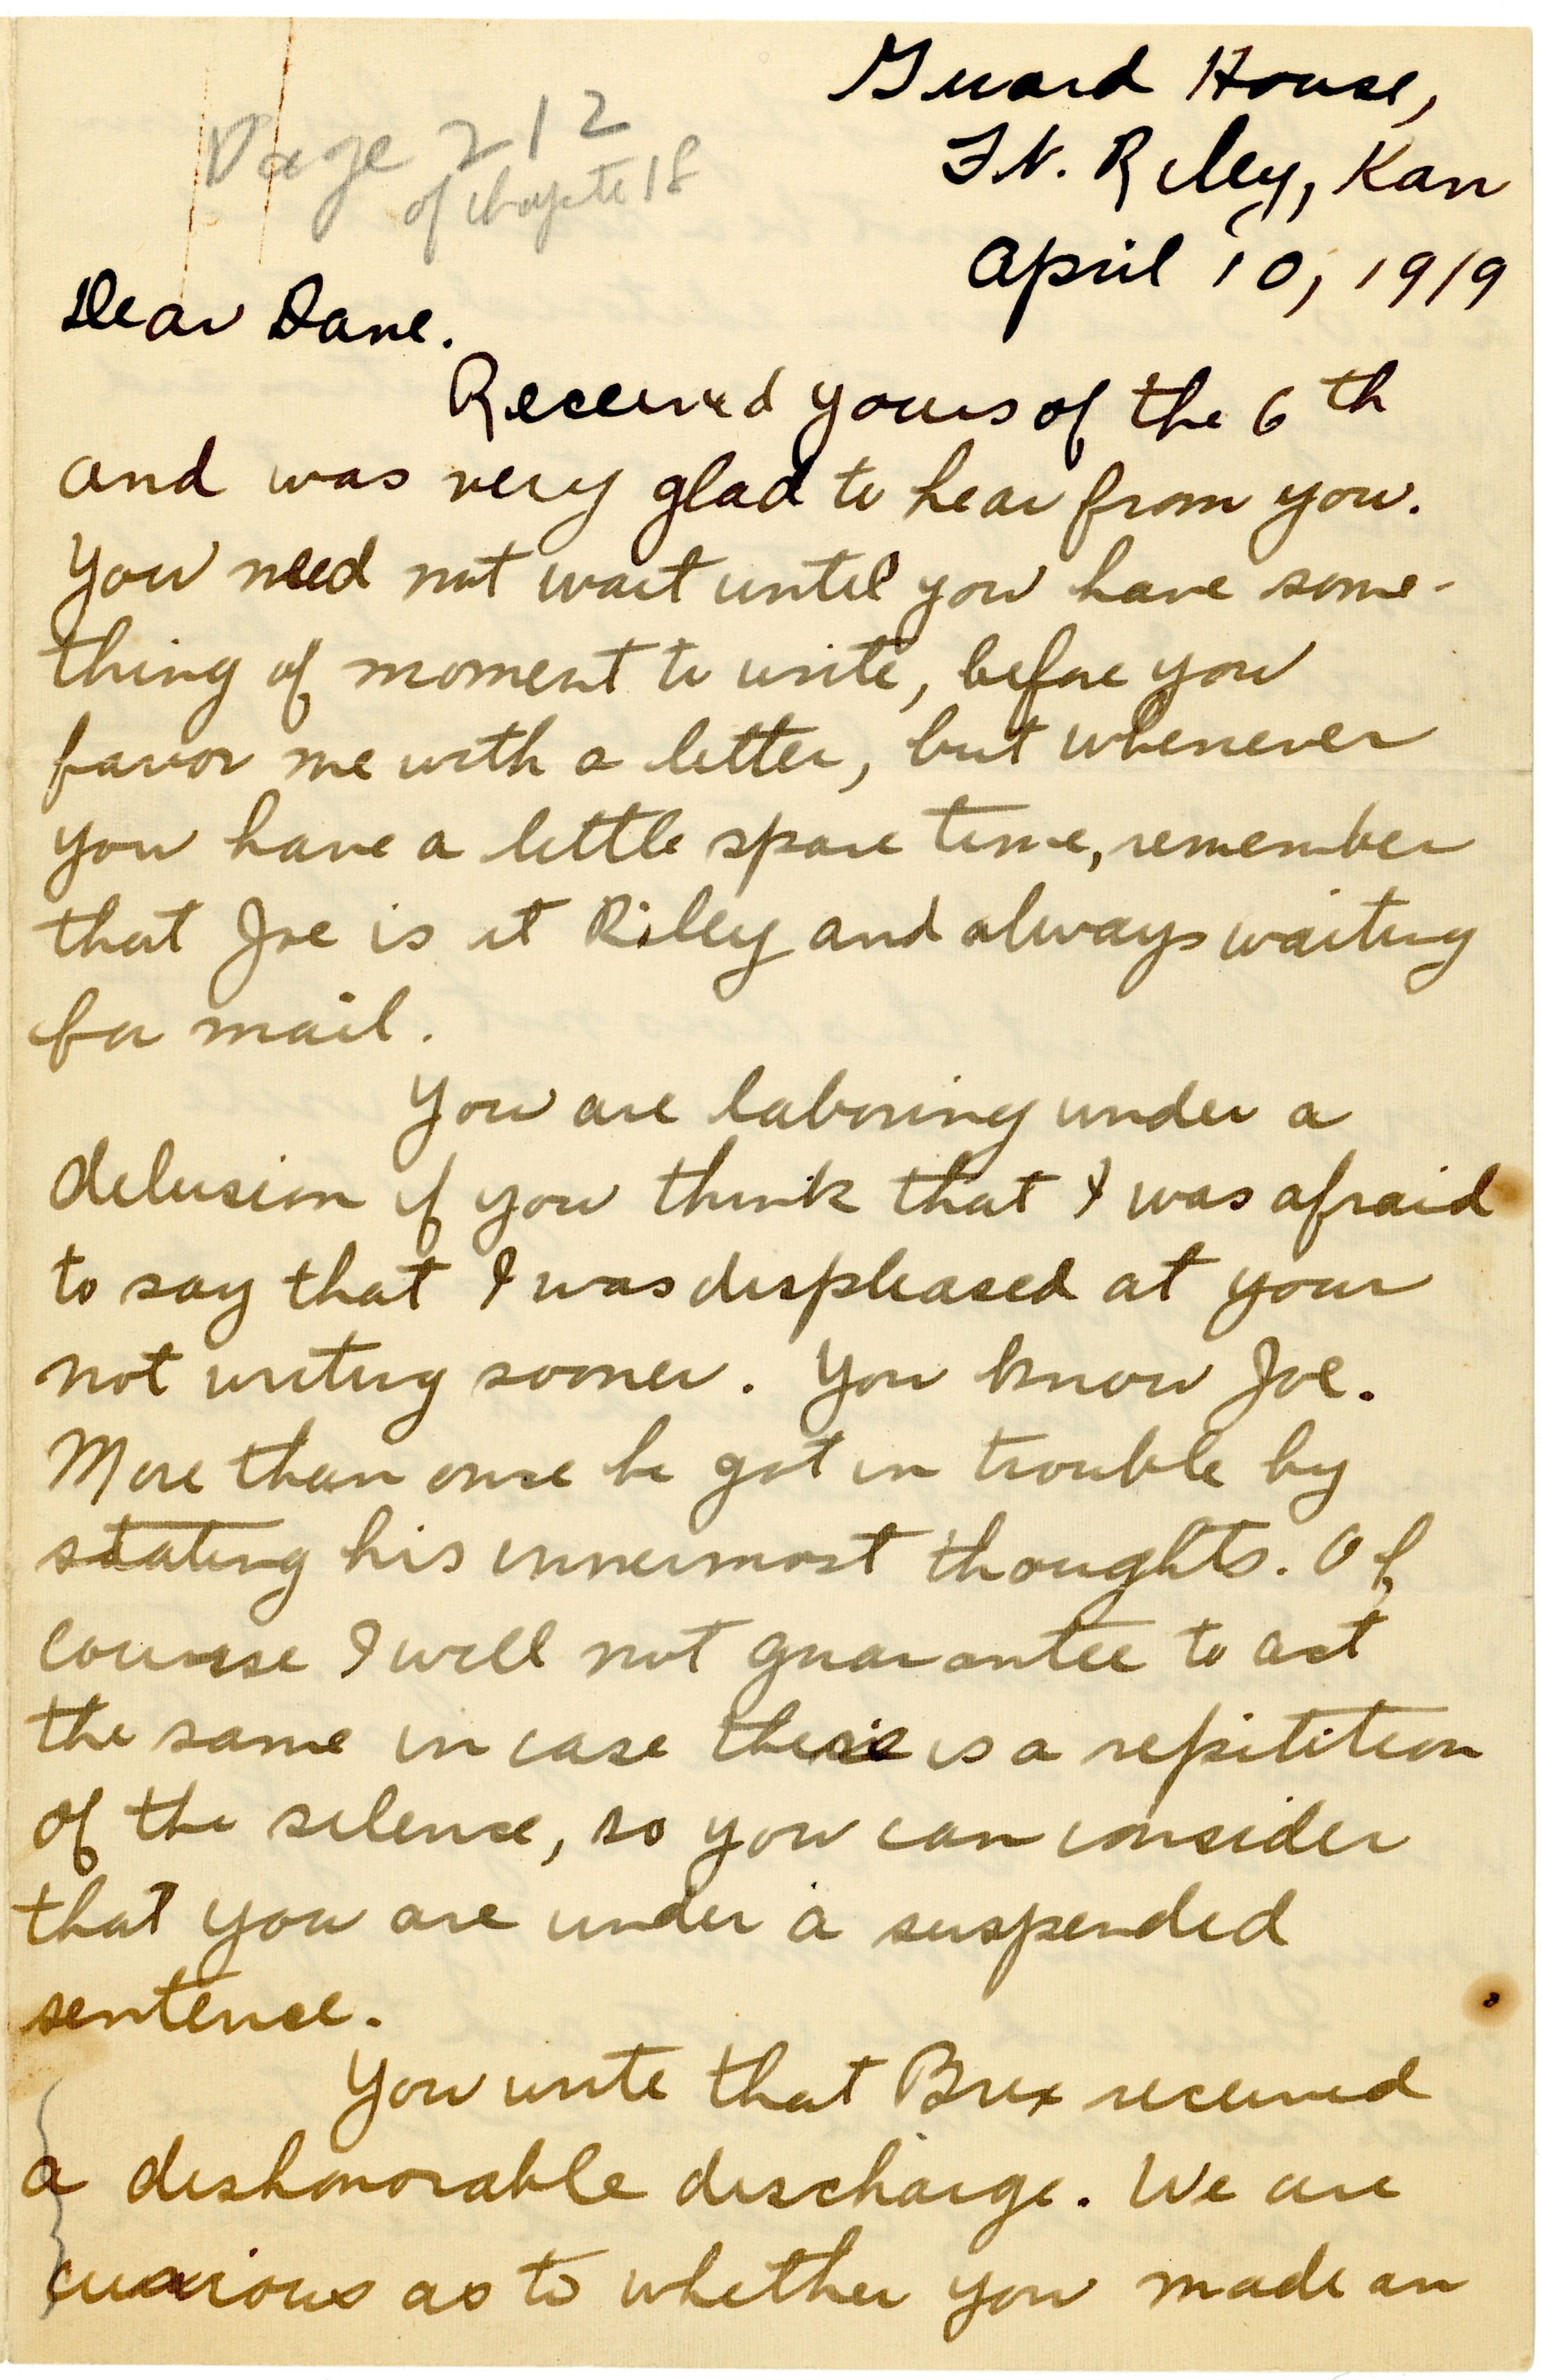 Guard House,
Ft. Riley, Kan
April 10, 1919
Page 212
of chapte 18
Dear Dane.
Received yours of the 6th
and was very glad to hear from you.
You need not wait until you have some-
thing of moment to write, before you
favor me with a letter, but whenever
you have a little spare time, remember
that Joe is at Riley and always waiting
for mail.
You are laboring under a
delusion if you think that I was afraid
to say that I was displeased at your
not writing sooner. You know Joe.
More than once he got in trouble by
stating his innermost thoughts. Of
course I will not guarantee to act
the same in case there is a repitition
of the silence, so you can consider
that you are under a suspended
sentence.
You write that Brex received
a dishonorable discharge. We are
curious as to whether you made an